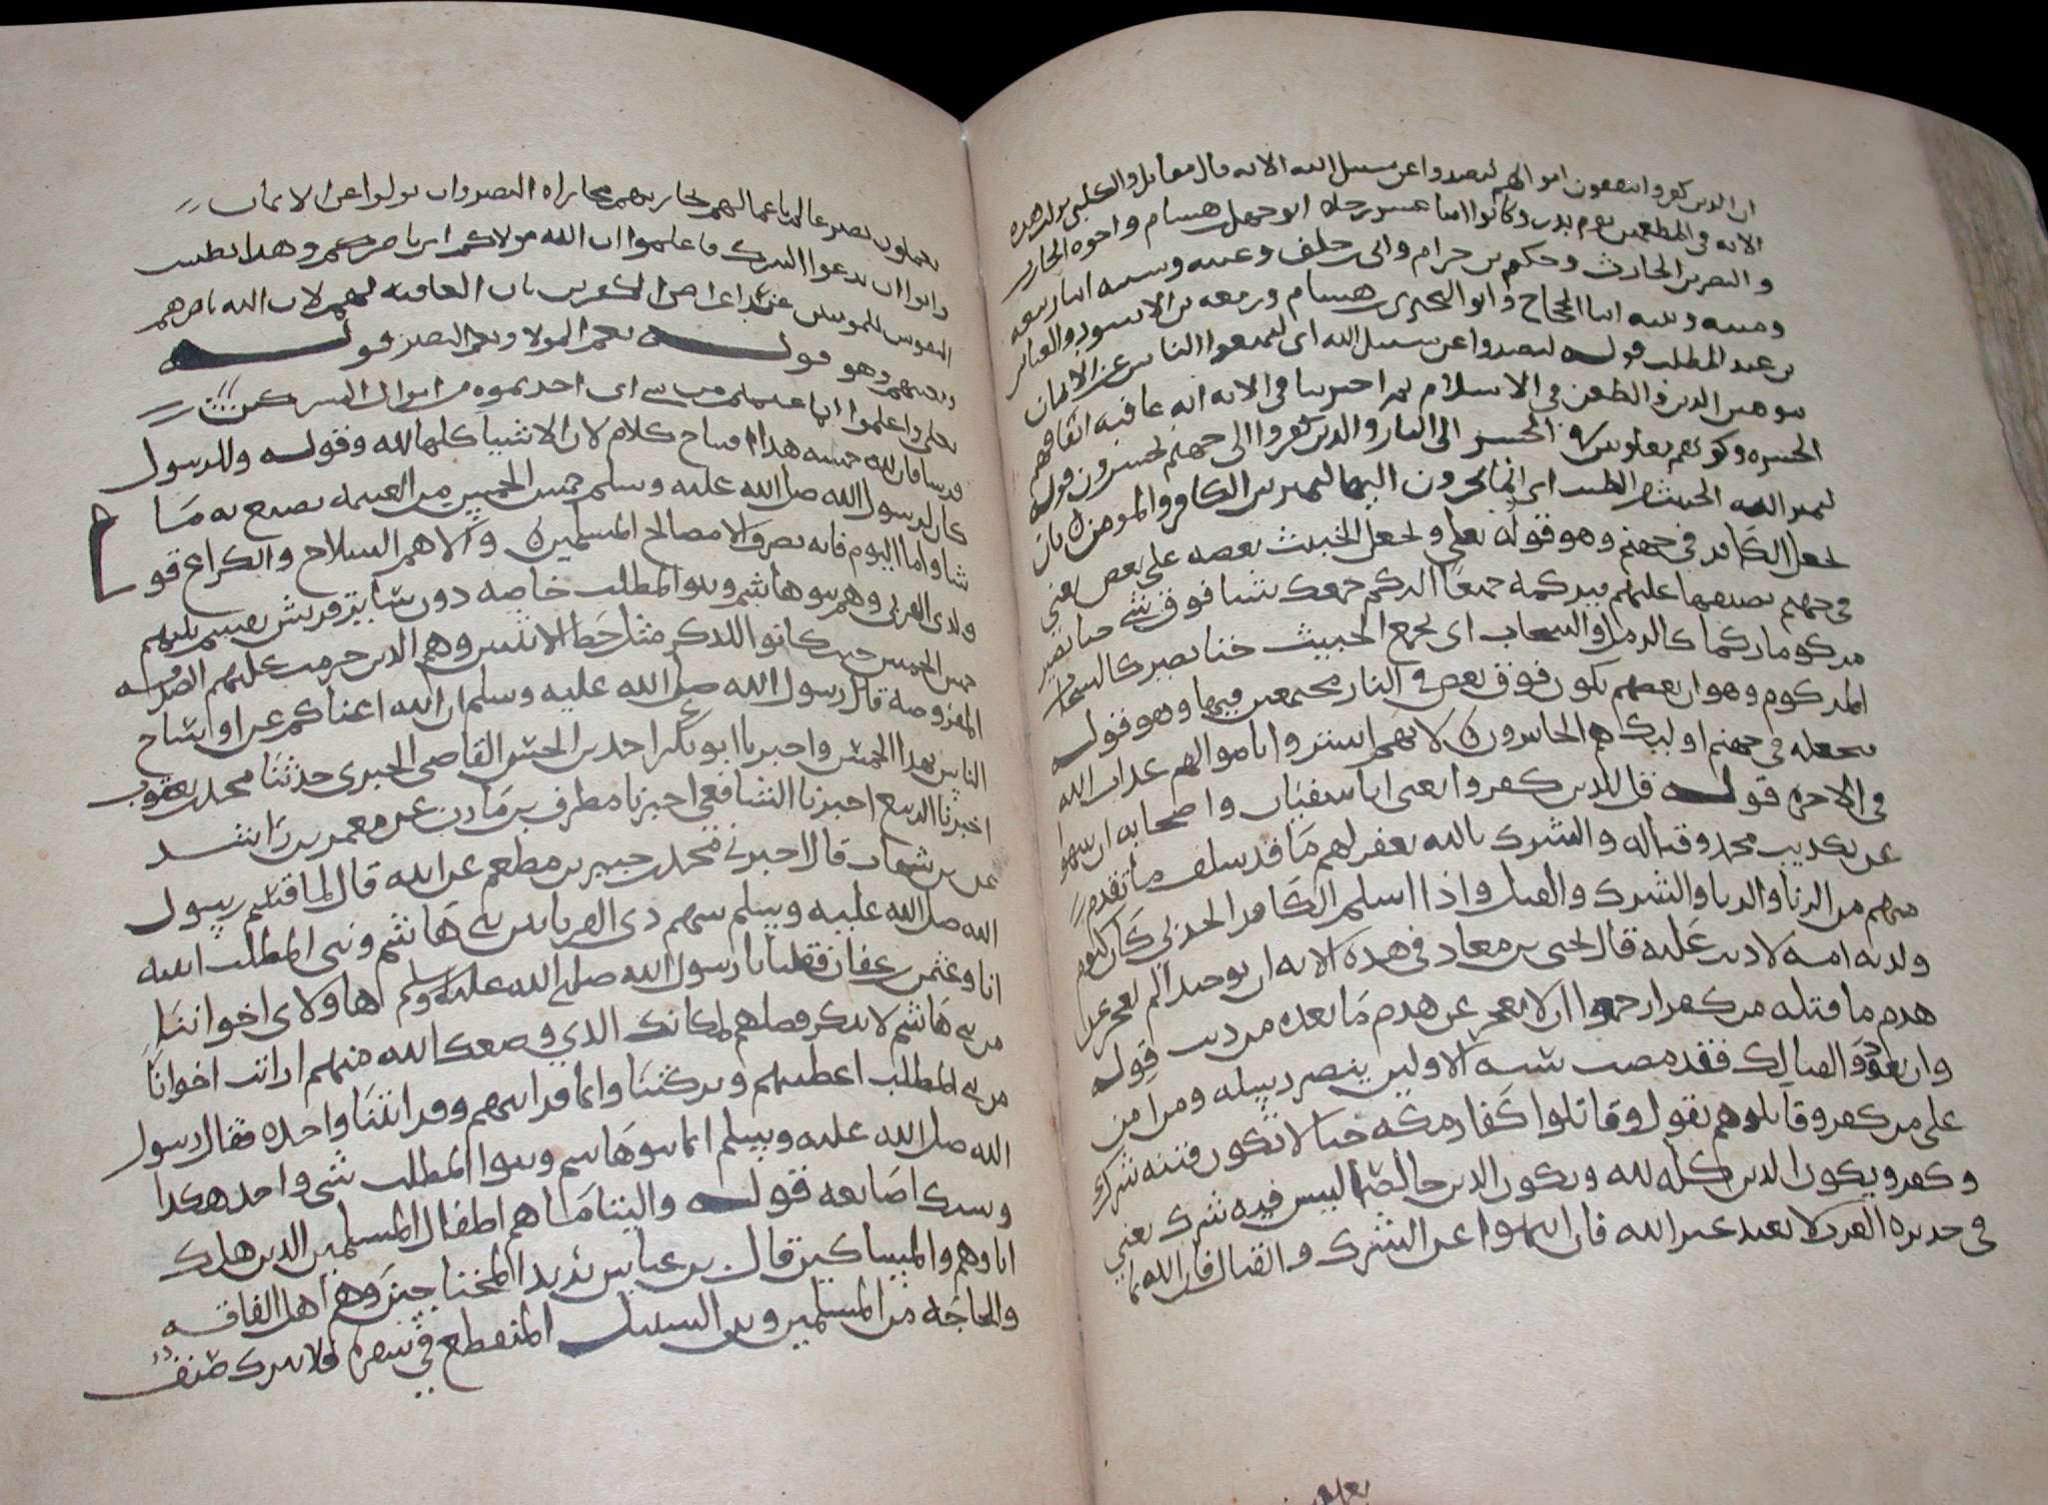 ان الذين كفروا ينفقون اموالهم ليصدوا عن سبيل الله الايه قال مقاتل والكلبي نزلت هذه
الايه في المطعمين يوم بدر وكانوا اثنا عشر رجلا ابو جهل بن هشام واخوه الحارث
والنضر بن الحارث وحكيم بن حزام وابى بن خلف وعتبه وشيبه ابنا ربيعه
ومنبه ونبيه ابنا الحجاج وابو البختري بن هشام وزمعه بن الاسود والعباس
بن عبد المطلب قوله ليصدوا عن سبيل الله اى ليمنعوا الناس عن الايمان
الدين والطعن في الاسلام ثم اخبرنا في الايه انه عاقبه انفاقهم
الحسره وكونهم يغلبون ثم الحشر الى النار والذين كفروا الى جهنم يحشرون قوله
ليميز الله الخبيث من الطيب اى انما يحشرون اليها ليميز بين الكافر والمومن بان
يجعل الكافر في جهنم وهو قوله تعلى ويجعل الخبيث بعضه على بعض يعني
في جهنم يضيقها عليهم فيركمه جميعا الركم جمعك شيا فوق شى حتا تصير
مركوما ركما كالرمل والسحاب اى يجمع الخبيث حتا يصير كالسحاب
المركوم وهو ان بعضهم يكون فوق بعض في النار مجتمعين فيها وهو قوله
فيجعله في جهنم اوليك هم الخاسرون لانهم اشتروا باموالهم عذاب الله
في الاخره قوله قل للذين كفروا يعنى ابا سفيان واصحابه ان ينتهوا
عن تكذيب محمد وقتاله والشرك بالله يغفر لهم ما قد سلف ما تقدم
منهم من الزنا والربا والشرك والقتل واذا اسلم الكافر الحربي كان كيوم
ولدته امه لا ذنب عليه قال يحيى بن معاذ في هذه الايه ان توحيدا لم يعجز عن
هدم ما قبله من كفر ارجوا ان لا يعجز عن هدم ما بعده من ذنب قوله
وان يعودوا القتالك فقد مضت سنه الاولين بنصر رسله ومن امن
على من كفر وقاتلوهم يقول وقاتلوا كفار مكه حتا لا تكون فتنه شرك
وكفر ويكون الدين كله لله ويكون الدين خالصا ليس فيه شرك يعني
في جزيره العرب لا يعبد غير الله فان انتهوا عن الشرك والقتال فان الله بما
يعملون بصير عالم باعمالهم يجازيهم مجازاه البصير وان تولوا عن الايمان
وابوا ان يدعوا الشرك فاعلموا ان الله مولاكم اى ناصركم وهذا تطييب
النفوس للمومنين عند اعراض الكفرين بان العاقبه لهم لان الله ناصرهم
ومعينهم وهو قوله نعم المولا ونعم النصير قوله
تعلى واعلموا انما غنمتم من شى اى اخذتموه من اموال المشركين
قسرا فان لله خمسه هذا افتتاح كلام لان الاشيا كلها لله وقوله وللرسول
كان لرسول الله صلى الله عليه وسلم خمس الخمس من الغنيمه يصنع به ما
شا واما اليوم فانه يصرف الا مصالح المسلمين والاهم السلاح والكراع قو
ولذى القربى وهم بنو هاشم وبنو المطلب خاصه دون سائر قريش يقسم بينهم
خمس الخمس حيث كانوا للذكر مثل حظ الانثيين وهم الذين حرمت عليهم الصدقه
المفروضه قال رسول الله صلى الله عليه وسلم ان الله اغناكم عن اوساخ
الناس بهذا الخمس واخبرنا ابو بكر احمد بن الحسن القاضى الحيرى حدثنا محمد بن يعقوب
اخبرنا الربيع اخبرنا الشافعي اخبرنا مطرف بن مازن عن معمر بن راشد
عن بن شهاب قال اخبرني محمد بن جبير بن مطعم عن ابيه قال لما قسم رسول
الله صلى الله عليه وسلم سهم ذى القربا بين بني هاشم وبني المطلب اتيته
انا وعثمن بن عفان فقلنا يا رسول الله صلى الله عليك وسلم هاولاى اخواننا
من بني هاشم لا ينكر فضلهم لمكانك الذي وضعك الله منهم ارايت اخواننا
من بني المطلب اعطيتهم وتركتنا وانما قرابتهم وقرابتنا واحده فقال رسول
الله صلى الله عليه وسلم انما بنو هاشم وبنوا المطلب شى واحد هكذا
وشبك اصابعه قوله واليتاما هم اطفال المسلمين الذين هلك
اباوهم والمساكين قال بن عباس يريد المحتاجين وهم اهل الفاقه
والحاجه من المسلمين وبن السبيل المنقطع في سفره صنف